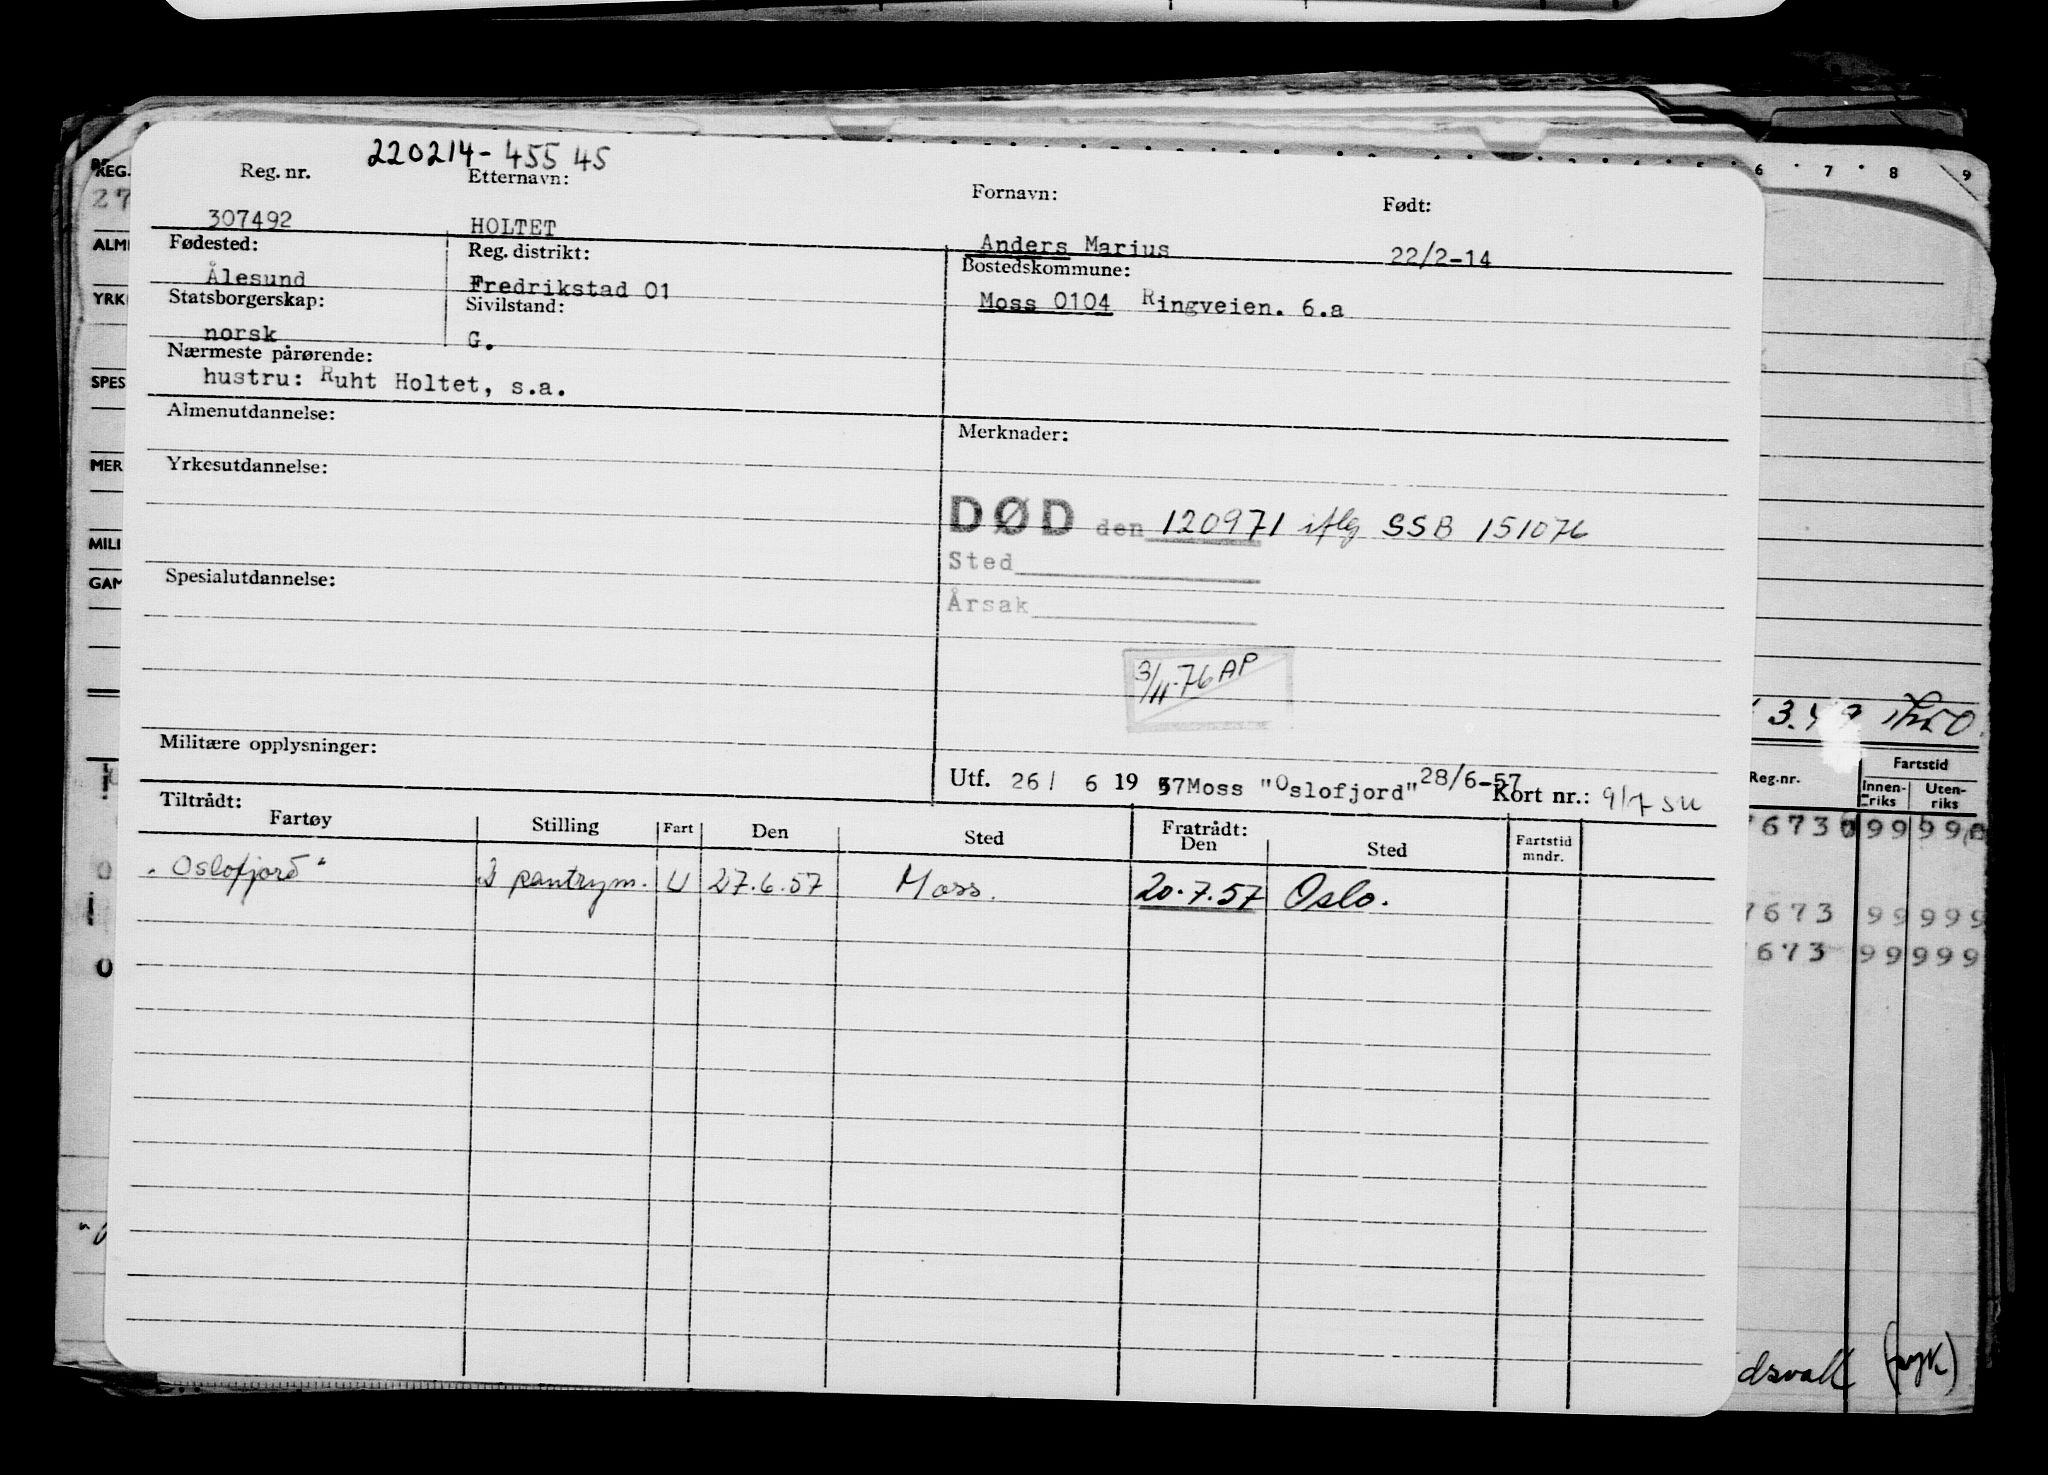 220214-45545
Reg. nr. Etternavn: Fornavn: Født:
307492 HOLTET Anders Marius 22/2-14
Fødested: Reg. distrikt: Bostedskommune:
Ålesund Fredrikstad 01 Moss 0104 Ringveien. 6.a
Statsborgerskap: Sivilstand:
norsk G.
Nærmeste pårørende:
hustru: Ruht Holtet, s.a.
Almenutdannelse: Merknader:
Yrkesutdannelse:
DØD den 120971 iflg SSB 151076
Sted
Spesialutdannelse:
Årsak
3/11-76 AP
Militære opplysninger:
Utf. 26/ 6 19 57 Moss "Oslofjord" 28/6-57 Kort nr.: 9/7 SU
Tiltrådt: Fratrådt:
Fartøy Stilling Fart Den Sted Den Sted Fartstid mndr.
"Oslofjord" pantrym. U 27.6.57 Moss. 20.7.57 Oslo.
REG.
27
ALM
YRK
SPES
MER
MILI
GAM
6 7 8 9
Reg.nr. Fartstid
Innen-riks Uten-riks
7673 99 999
673 99 999